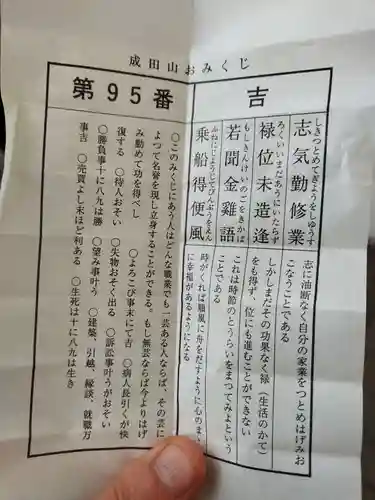 成田山おみくじ
第95番
吉
しきつとめてぎようをしゆうす
志気勤修業
志に油断なく自分の家業をつとめはげみおこなうことである
ろくいいまだあうにいたらず
禄位未造逢
しかしまだその功果なく禄(生活のかて)をも得ず、位にも進むことができない
もしきんけいのごをきかば
若聞金雞語
これは時節のとうらいをまつてみよという
ふねにじようじてびんぷうをえん
乗船得便風
時がくれば順風に舟をだすように心のまゝに幸福があるようになる
○このみくじにあう人はどんな職業でも一芸ある人ならば、その芸に
よつて名誉を現し立身することができる。もし無芸ならば今よりはげ
み勤めて功を得べし
○よろこび事末にて吉 ○病人長引くが快
復する ○待人おそい ○失物おそく出る ○訴訟事叶うがおそい
○勝負事十に八九は勝 ○望み事叶う ○建築、引越、縁談、就職万
事吉 ○売買よし末ほど利ある ○生死は十に八九は生き